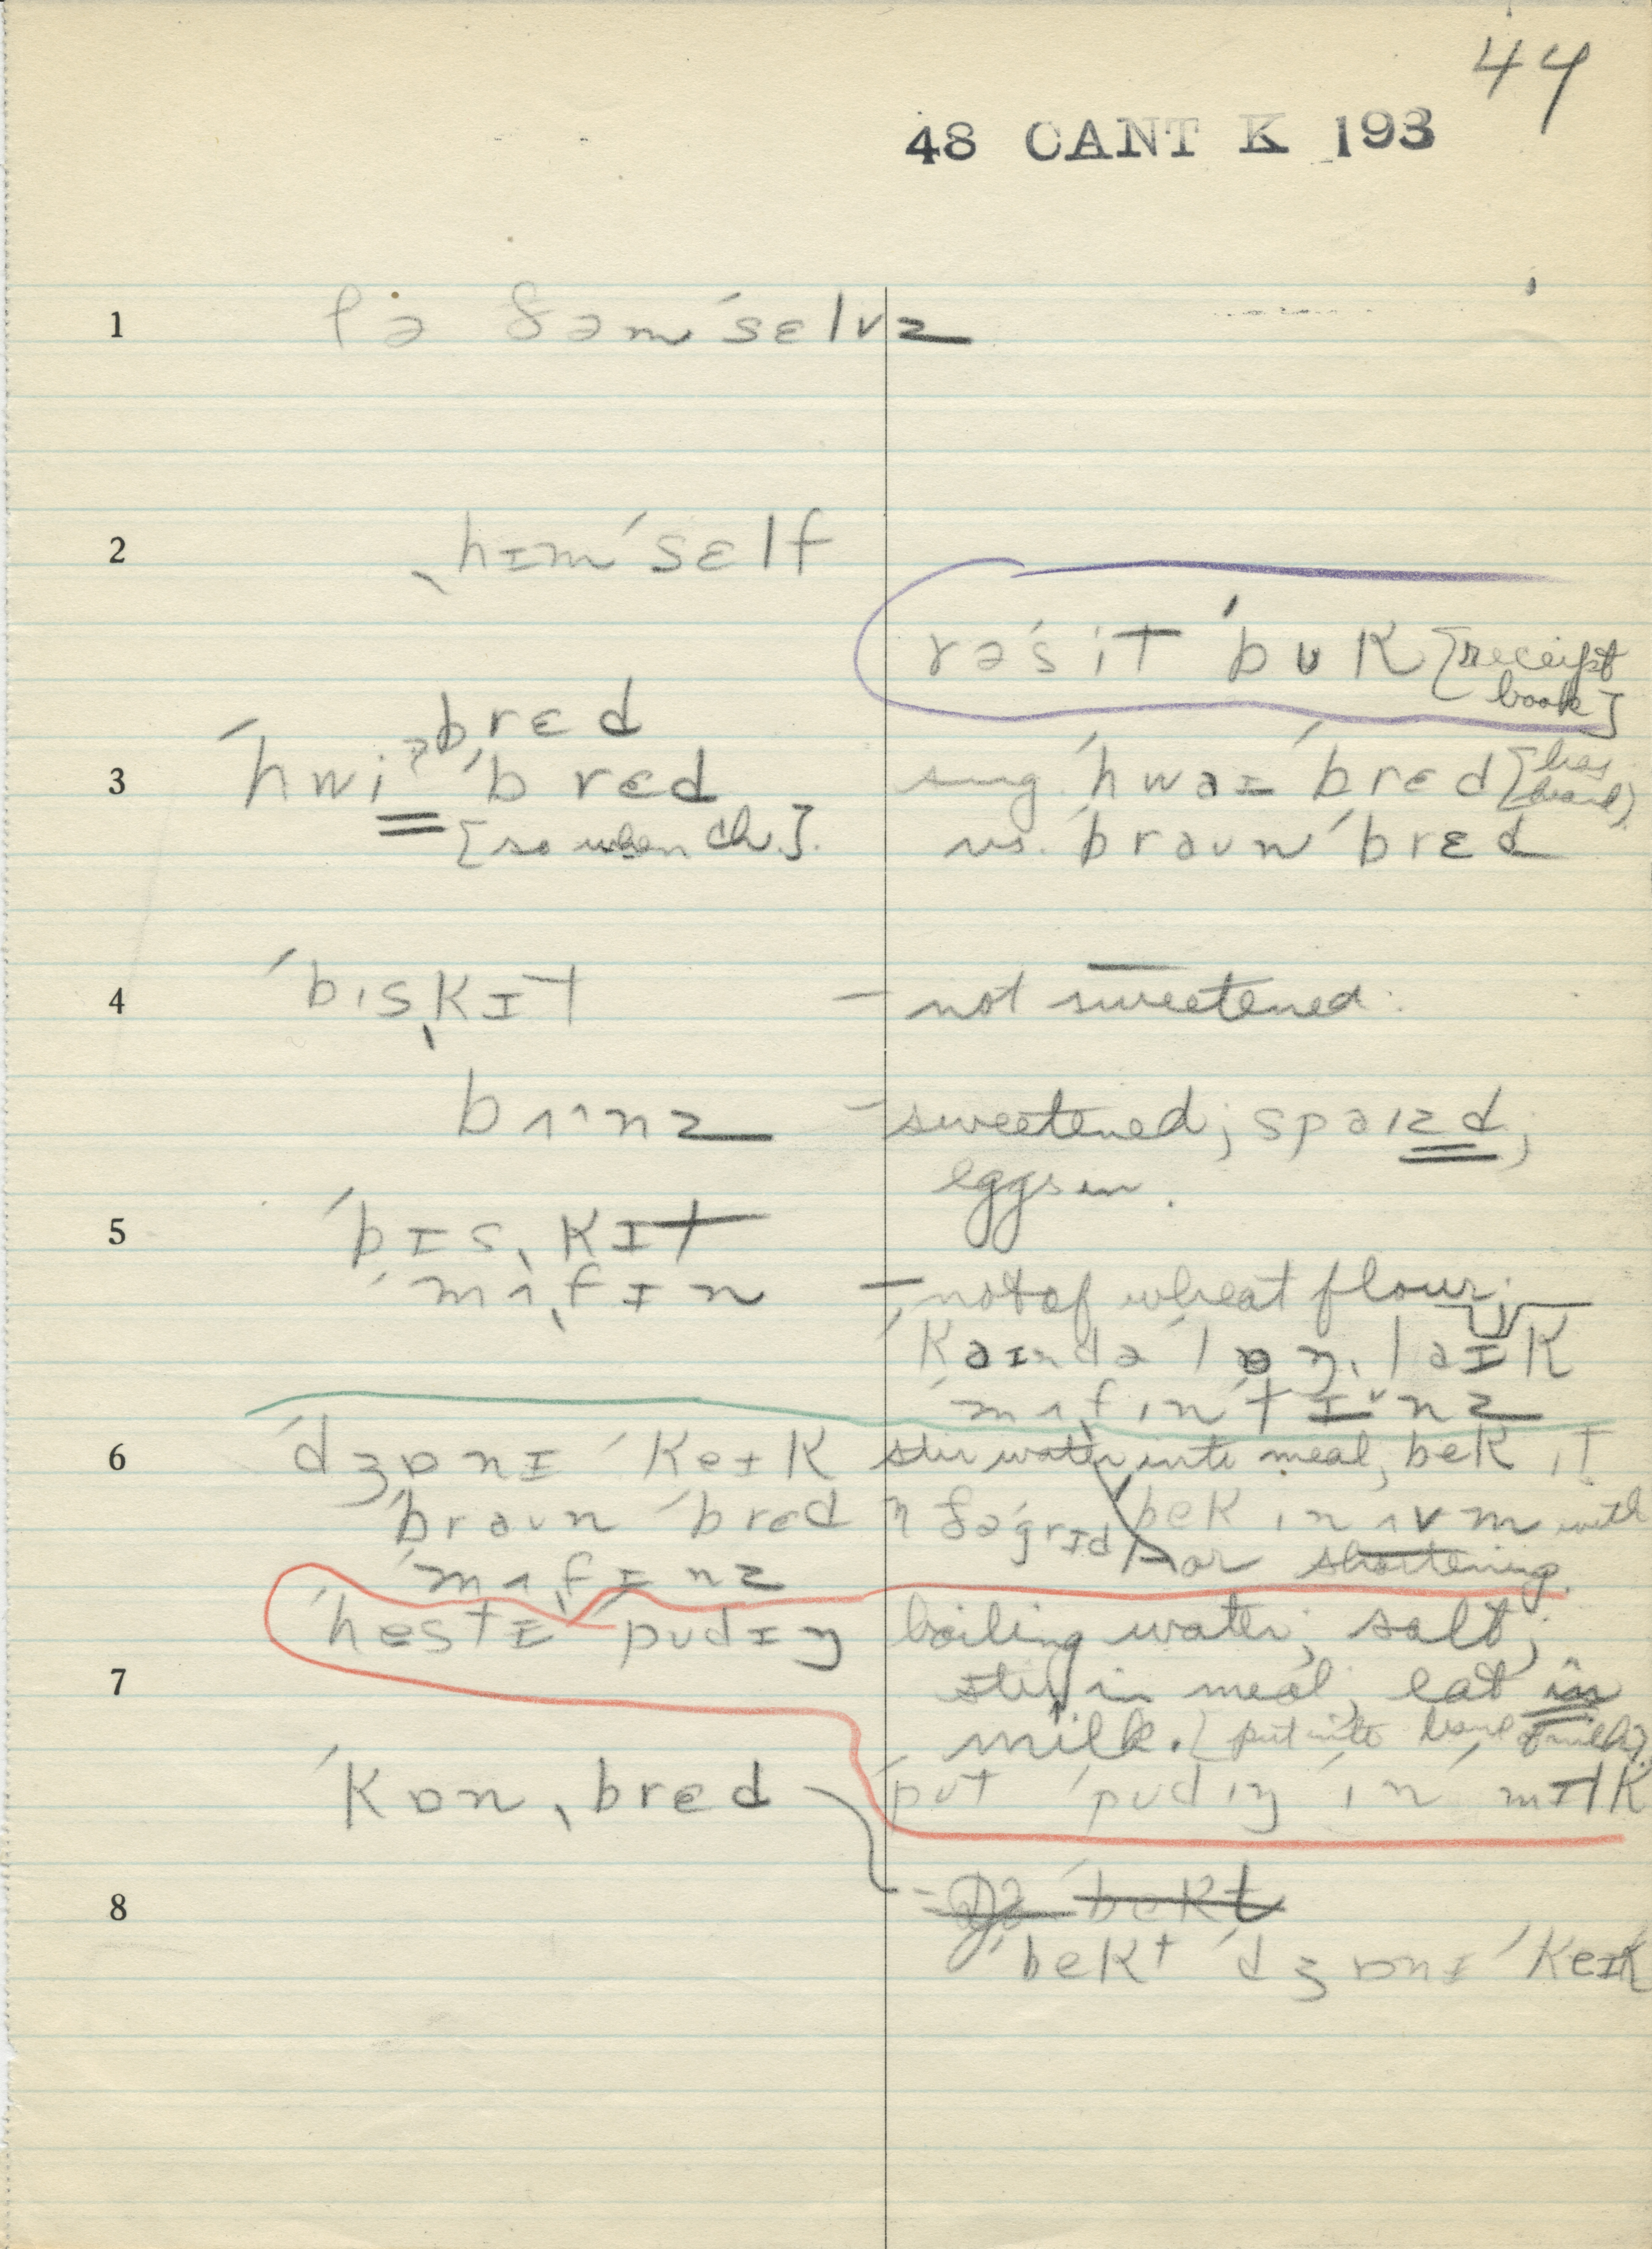 44
48 CANT K 193
1 fə ðəm ˈsɛlvz
2 ˌhɪm ˈsɛlf
rəˈsit ˈbʊk [receipt book]
bred
3 ˈhwiˀ ˈbred
[so when ch.].
sug. ˈhwaɪ ˈbrɛd [has heard]
vs. ˈbraʊn ˈbrɛd
4 ˈbisˌkɪt — not sweetened.
bʌˑnz — sweetened; spaɪzd;
eggs in.
5 ˈbɪsˌkɪt
ˈmʌˌfɪn — not of wheat flour;
ˈkaɪndə ˈlɒŋ, laɪk
ˈmʌfˌin ˈtɪˇnz
6 ˈdʒɒnɪ ˈkeɪk stir water into meal, bek ɪt
ˈbraʊn ˈbred n ðə ˈgrɪd bek in ʌvm with
ˈmʌˌfɪnz or shortening.
ˈhestɪ ˈpudɪŋ boiling water; salt;
7 stir in meal, eat in
milk. [put into bowl of milk].
ˈput ˈpudɪŋ ˈin ˈmɪlk
ˈkɒnˌbred
8 ˈbekt
ˈbekt ˈdʒɒnɪ ˈkeɪk